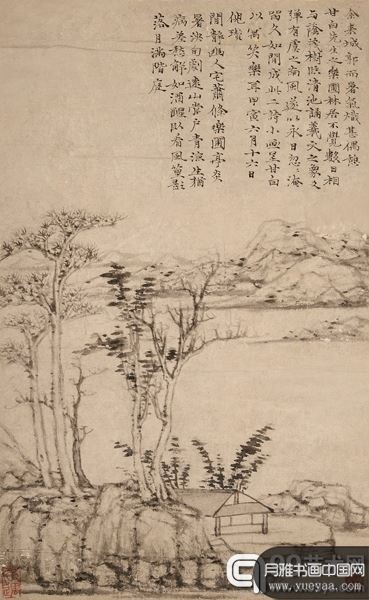 余來城郭而暑氣熾甚偶憩
甘白先生之樂圃林居不覺數日相
與蔭樹臨清池誦羲文之象爻
彈有虞之南風遂以永日忽忽淹
留久如閒戲成此二詩小畫呈甘白
以寓笑樂耳甲寅六月十六日
倪瓚
閒靜幽人宅蕭條樂圃亭炎
暑向劇遠山當戶青涼生猶
病愁解如酒醒臥看風篁影
落月滿階庭
月雅书画中国网
www.yueyaa.com